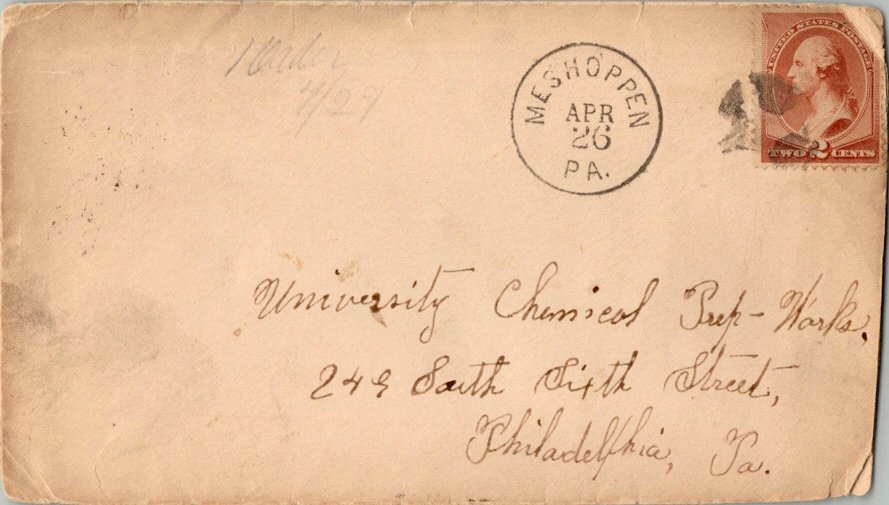 4/27
MESHOPPEN
APR
26
PA.
UNITED STATES POSTAGE
TWO 2 CENTS
University Chemical Prep-Works,
249 South Sixth Street,
Philadelphia, Pa.